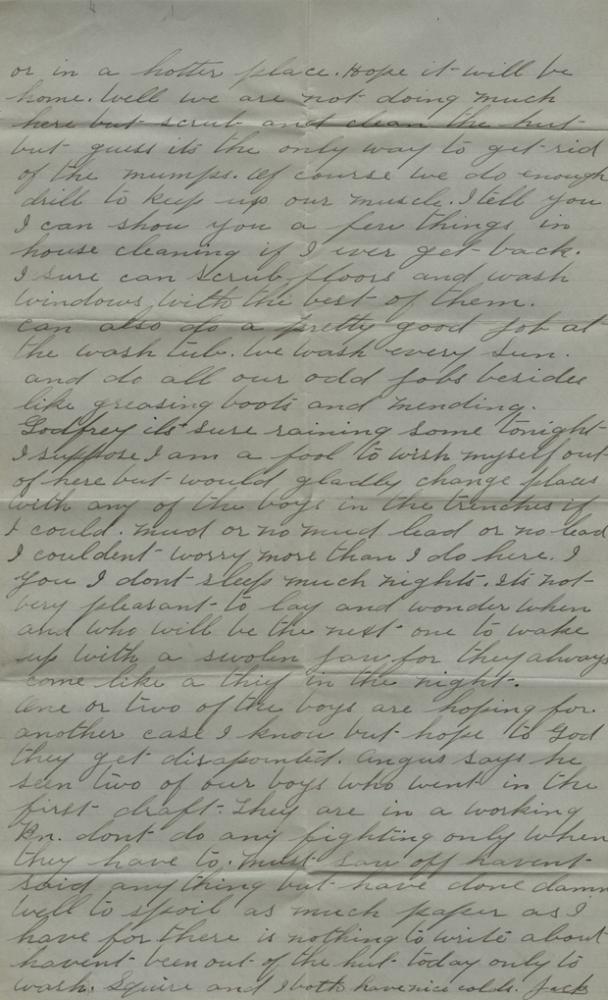 or in a hotter place. Hope it will be
home. Well we are not doing much
here but scrub and clean the hut
but guess its the only way to get rid
of the mumps. Of course we do enough
drill to keep up our muscle. I tell you
I can show you a few things in
house cleaning if I ever get back.
I sure can scrub floors and wash
windows with the best of them.
can also do a pretty good job at
the wash tub. We wash every Sun.
and do all our odd jobs besides
like greasing boots and mending.
Godfrey its sure raining some tonight
I suppose I am a fool to wish myself out
of here but would gladly change places
with any of the boys in the trenches if
I could. mud or no mud lead or no lead
I couldent worry more than I do here. I
you I dont sleep much nights. Its not
very pleasant to lay and wonder when
and who will be the next one to wake
up with a swolen jaw for they always
come like a thief in the night.
One or two of the boys are hoping for
another case I know but hope to God
they get disapointed. Angus says he
seen two of our boys who went in the
first draft. They are in a working
Bn. dont do any fighting only when
they have to. Must saw off havent
said any thing but have done damn
well to spoil as much paper as I
have for there is nothing to write about
havent been out of the hut today only to
wash. Squire and I both have nice colds. Jack